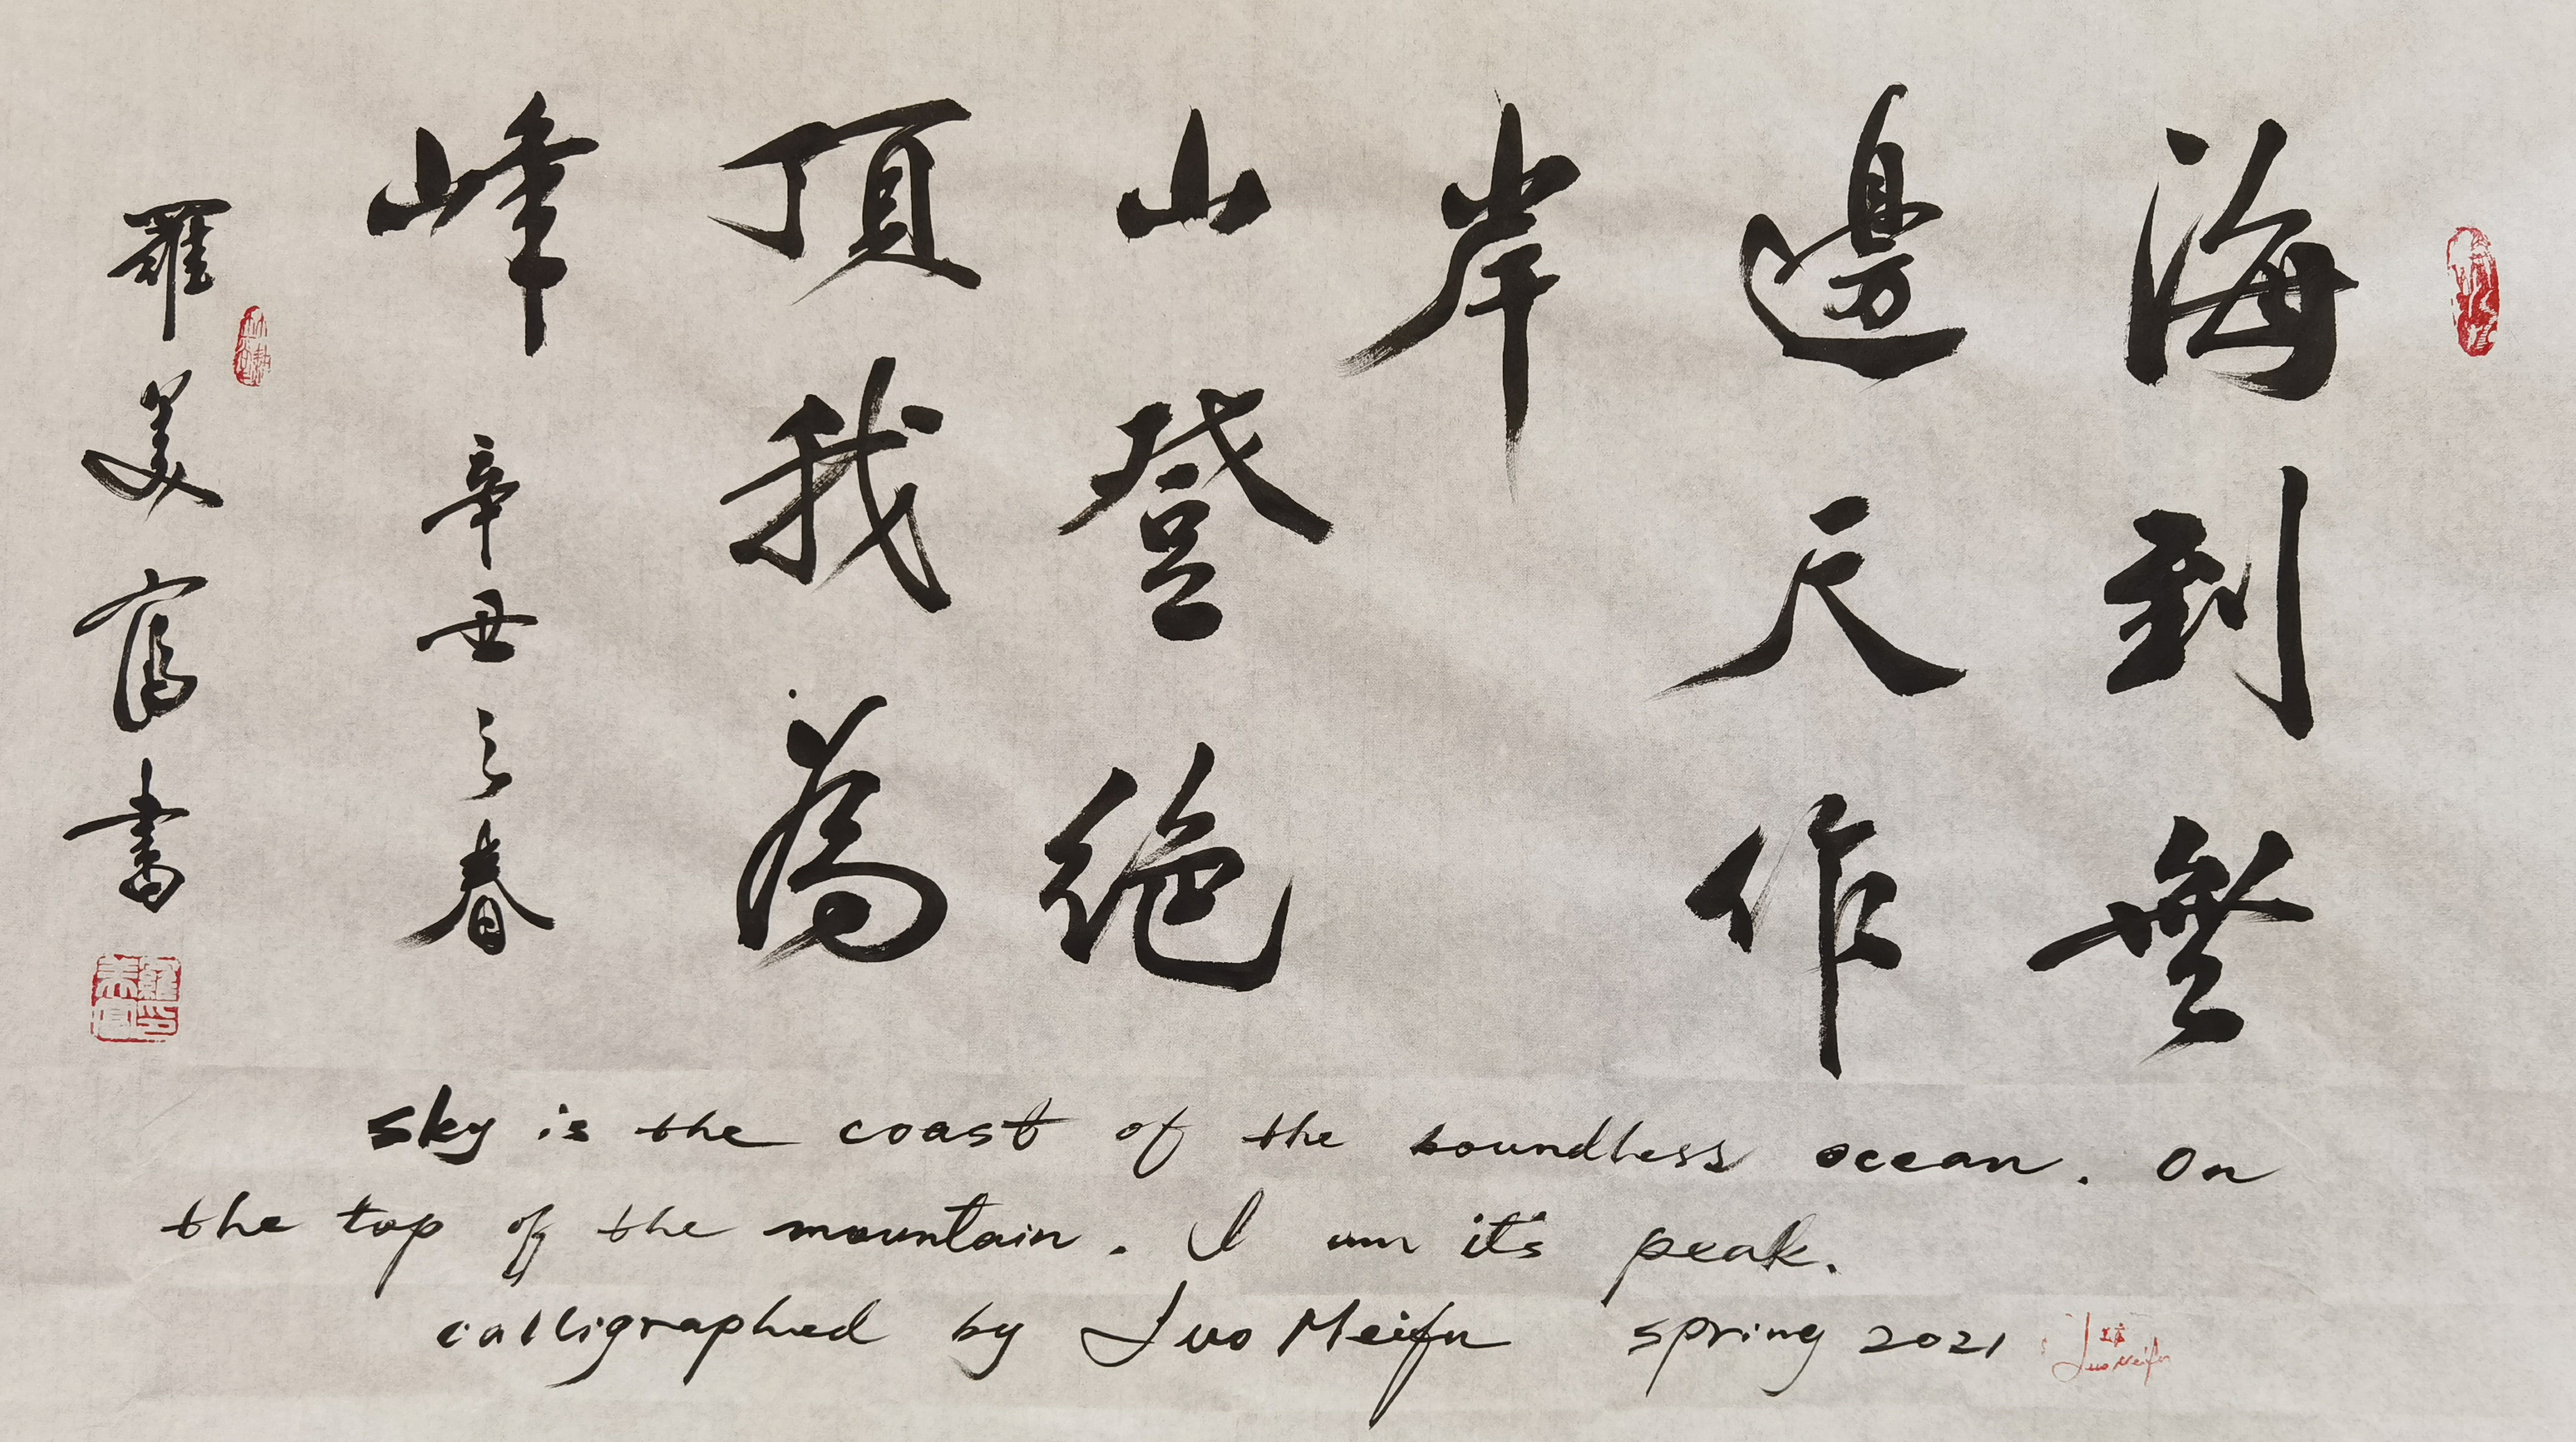 海到無
邊天作
岸
山登絕
頂我為
峰 辛丑之春
羅美富書
羅印美富
sky is the coast of the boundless ocean. On
the top of the mountain. I am it's peak.
calligraphed by Luo Meifu spring 2021
Luo Meifu